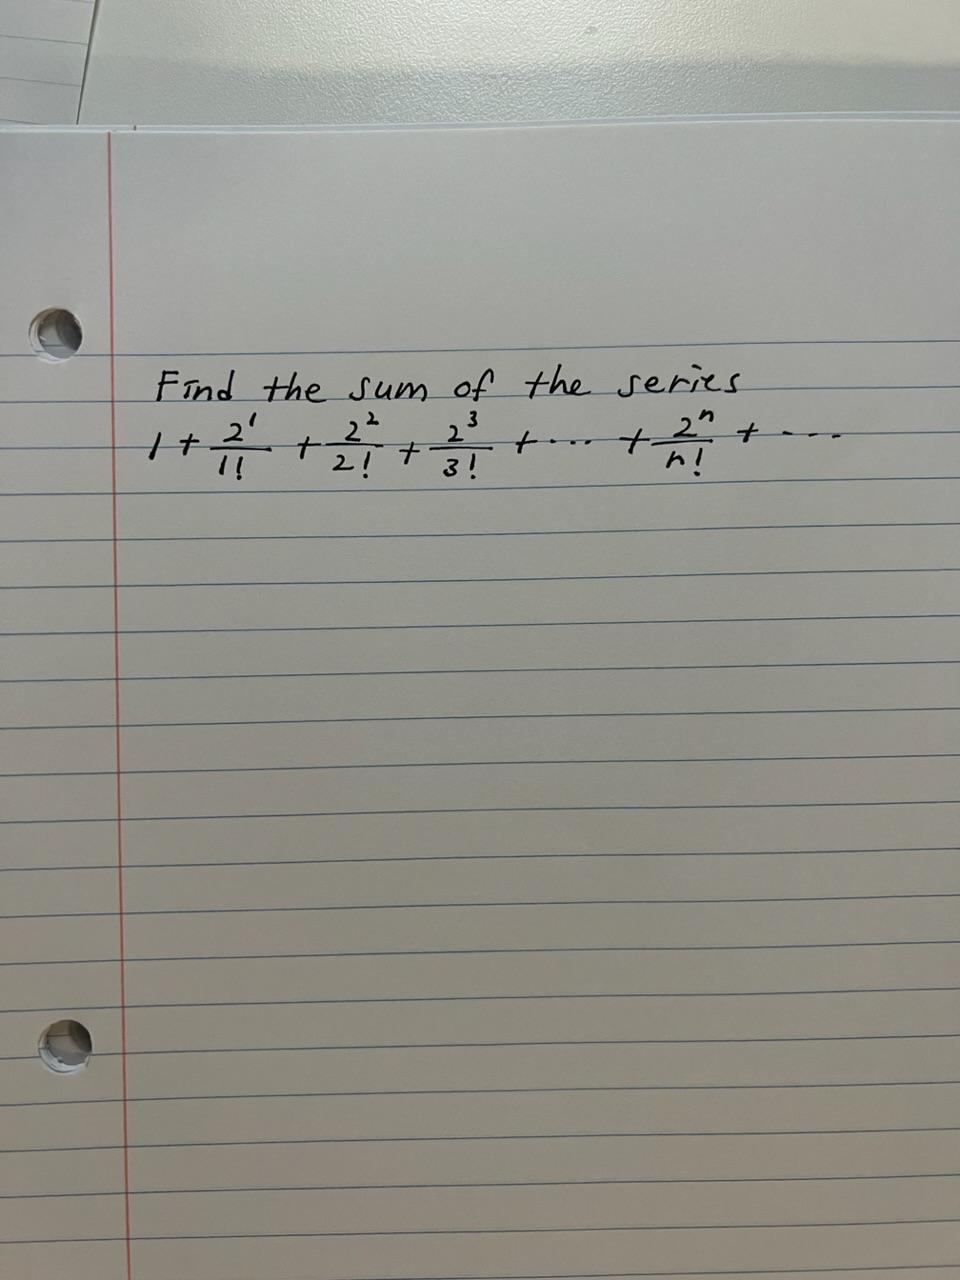 Find the sum of the series
1 + 2^1/1! + 2^2/2! + 2^3/3! + ... + 2^n/n! + ...